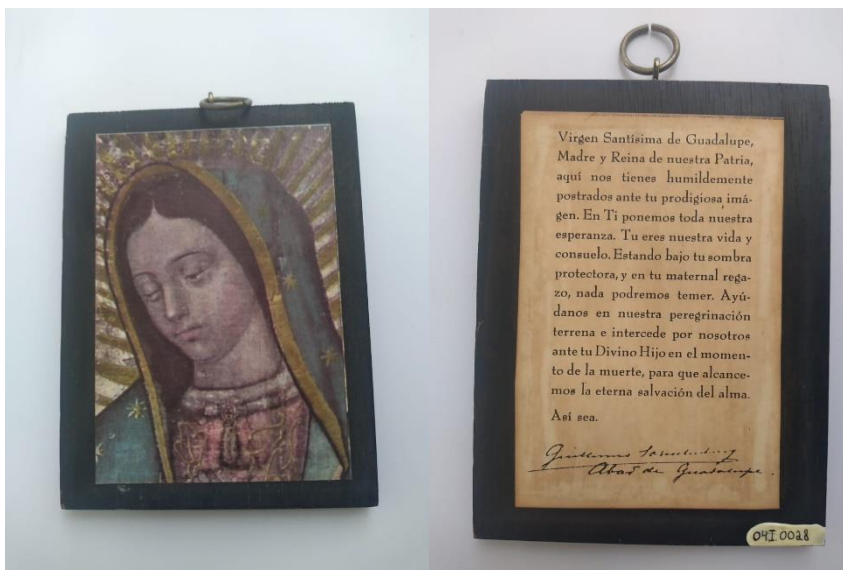 Virgen Santísima de Guadalupe,
Madre y Reina de nuestra Patria,
aquí nos tienes humildemente
postrados ante tu prodigiosa imá-
gen. En Ti ponemos toda nuestra
esperanza. Tu eres nuestra vida y
consuelo. Estando bajo tu sombra
protectora, y en tu maternal rega-
zo, nada podremos temer. Ayú-
danos en nuestra peregrinación
terrena e intercede por nosotros
ante tu Divino Hijo en el momen-
to de la muerte, para que alcance-
mos la eterna salvación del alma.
Así sea.
Guillermo
Abad de Guadalupe.
04I.0028